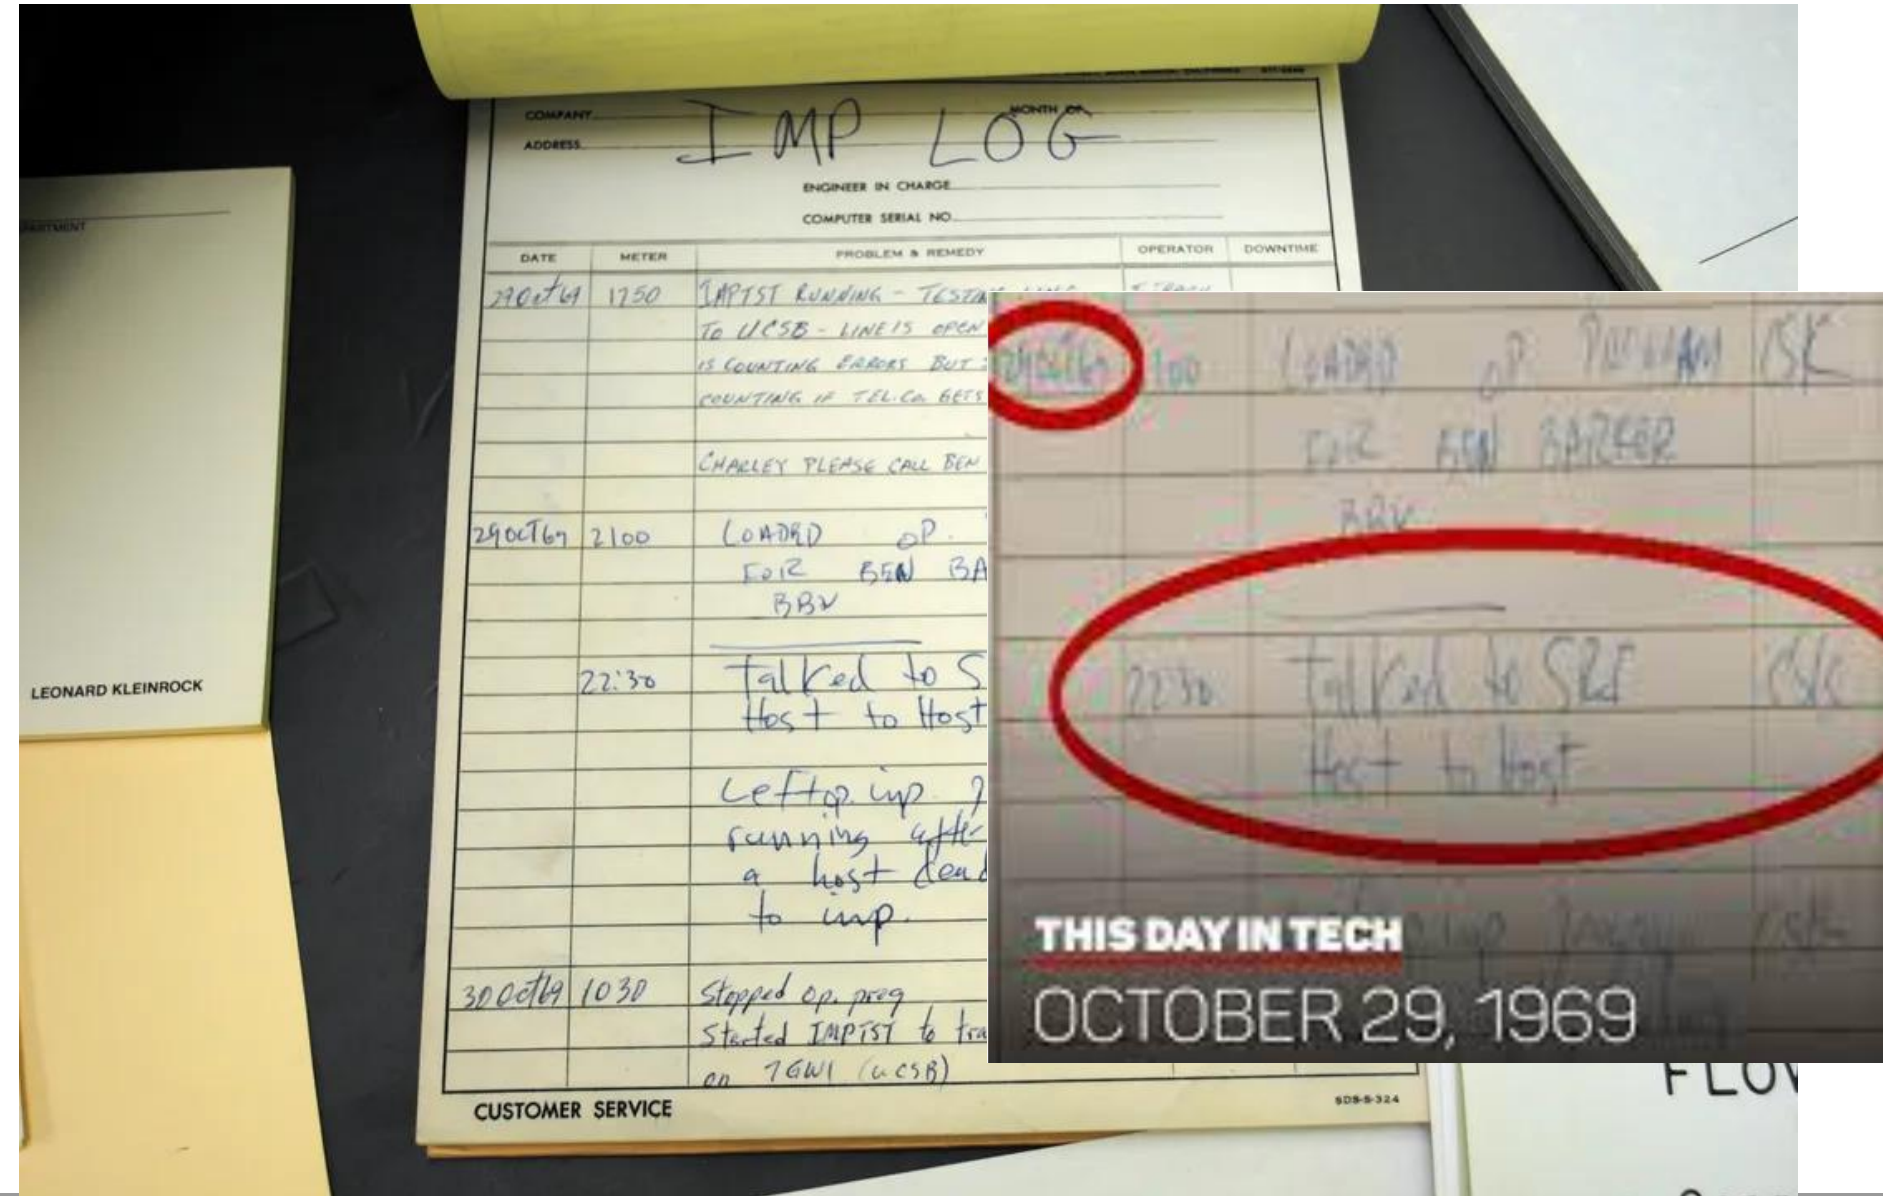 COMPANY
MONTH OF
IMP LOG
ADDRESS
ENGINEER IN CHARGE
COMPUTER SERIAL NO.
DATE METER PROBLEM & REMEDY OPERATOR DOWNTIME
29Oct69 1750 IMPTST RUNNING - TESTING
TO UCSB - LINE IS OPEN
IS COUNTING ERRORS BUT
COUNTING IF TEL.CO. GETS
CHARLEY PLEASE CALL BEN
29Oct69 2100 LOADRD OP.
FOR BEN BA
BBN
22:30 Talked to S
Host to Host
Left op. imp
running after
a host dead
to imp.
30Oct69 1030 Stopped op. prog
Started IMPTST to tra
on 7GW1 (UCSB)
CUSTOMER SERVICE
SDS-S-324
PARTMENT
LEONARD KLEINROCK
29Oct69 100 LOADRD OP PROGRAM CSK
FOR BEN BARKER
BBN
22:30 Talked to SRI CSK
Host to Host
imp CSK
THIS DAY IN TECH
OCTOBER 29, 1969
FLOW